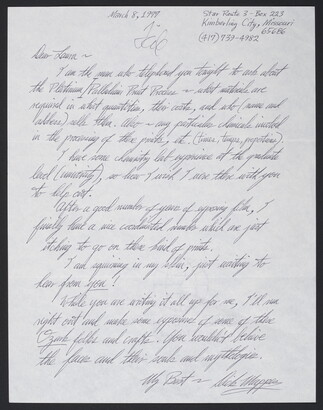 March 8, 1978
Star Route 3 - Box 223
Kimberling City, Missouri
65686
(417) 739-4982
Dear Laura ~
I am the man who telephoned you tonight to ask about
the Platinum/Palladium Print Process ~ what materials are
required in what quantities, their costs, and who (name and
address) sells them. Also ~ any particular chemicals involved
in the processing of these prints, etc. (times, temps, proportions).
I have some chemistry lab experience at the graduate
level (university), so how I wish I were there with you
to help out.
After a good number of years of exposing film, I
finally have a well coordinated number which are just
itching to go on these kind of prints.
I am squirming in my skin, just waiting to
hear from you!
While you are writing it all up for me, I'll run
right out and make some exposures of some of these
Ozark folks and crafts. You wouldn't believe
the faces and their souls and mythologies.
My Best ~ Dick